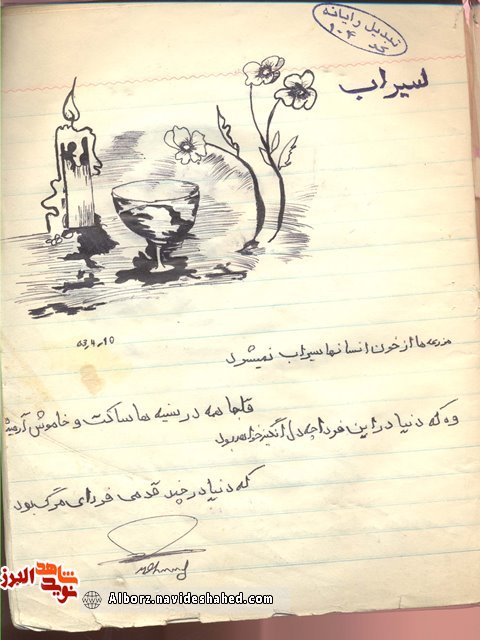 تبدیل رایانه
کد ۹۰۴
سیراب
63_4_10
مزرعه ها از خون انسانها سیراب نمیشود
قلبها همه در سینه ها ساکت و خاموش
وه که دنیا در این فردا چه دل انگیز خواهد بود
که دنیا در چند قدمی فردای مرگ بود
شاهد
نوید
البرز
Alborz.navideshahed.com